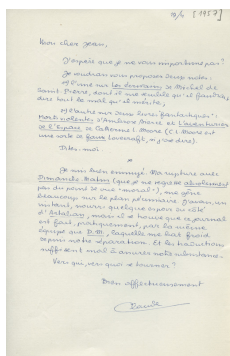 10/6 [1957]
Mon cher Jean,
J'espère que je ne vous importune pas ?
Je voudrais vous proposer deux notes :
A) Une sur Les écrivains, de Michel de
Saint Pierre, dont il me semble qu'il faudrait
dire tout le mal qu'il mérite,
B) L'autre sur deux livres fantastiques :
d'Ambrose Bierce et
de l'espace de Catherine L. Moore (C.L. Moore est
une sorte de faux Lovecraft, si j'ose dire).
Dites-moi.
*
Je suis bien ennuyé. Ma rupture avec
(que je ne regrette absolument
pas du point de vue "moral"), me gêne
beaucoup sur le plan pécuniaire. J'avais, un
instant, nourri quelque espoir du côté
d', mais il se trouve que ce journal
est fait, pratiquement, par la même
équipe que , laquelle me bat froid
depuis notre séparation. Et les traductions
suffisent mal à
Vers qui, vers quoi se tourner ?
Bien affectueusement